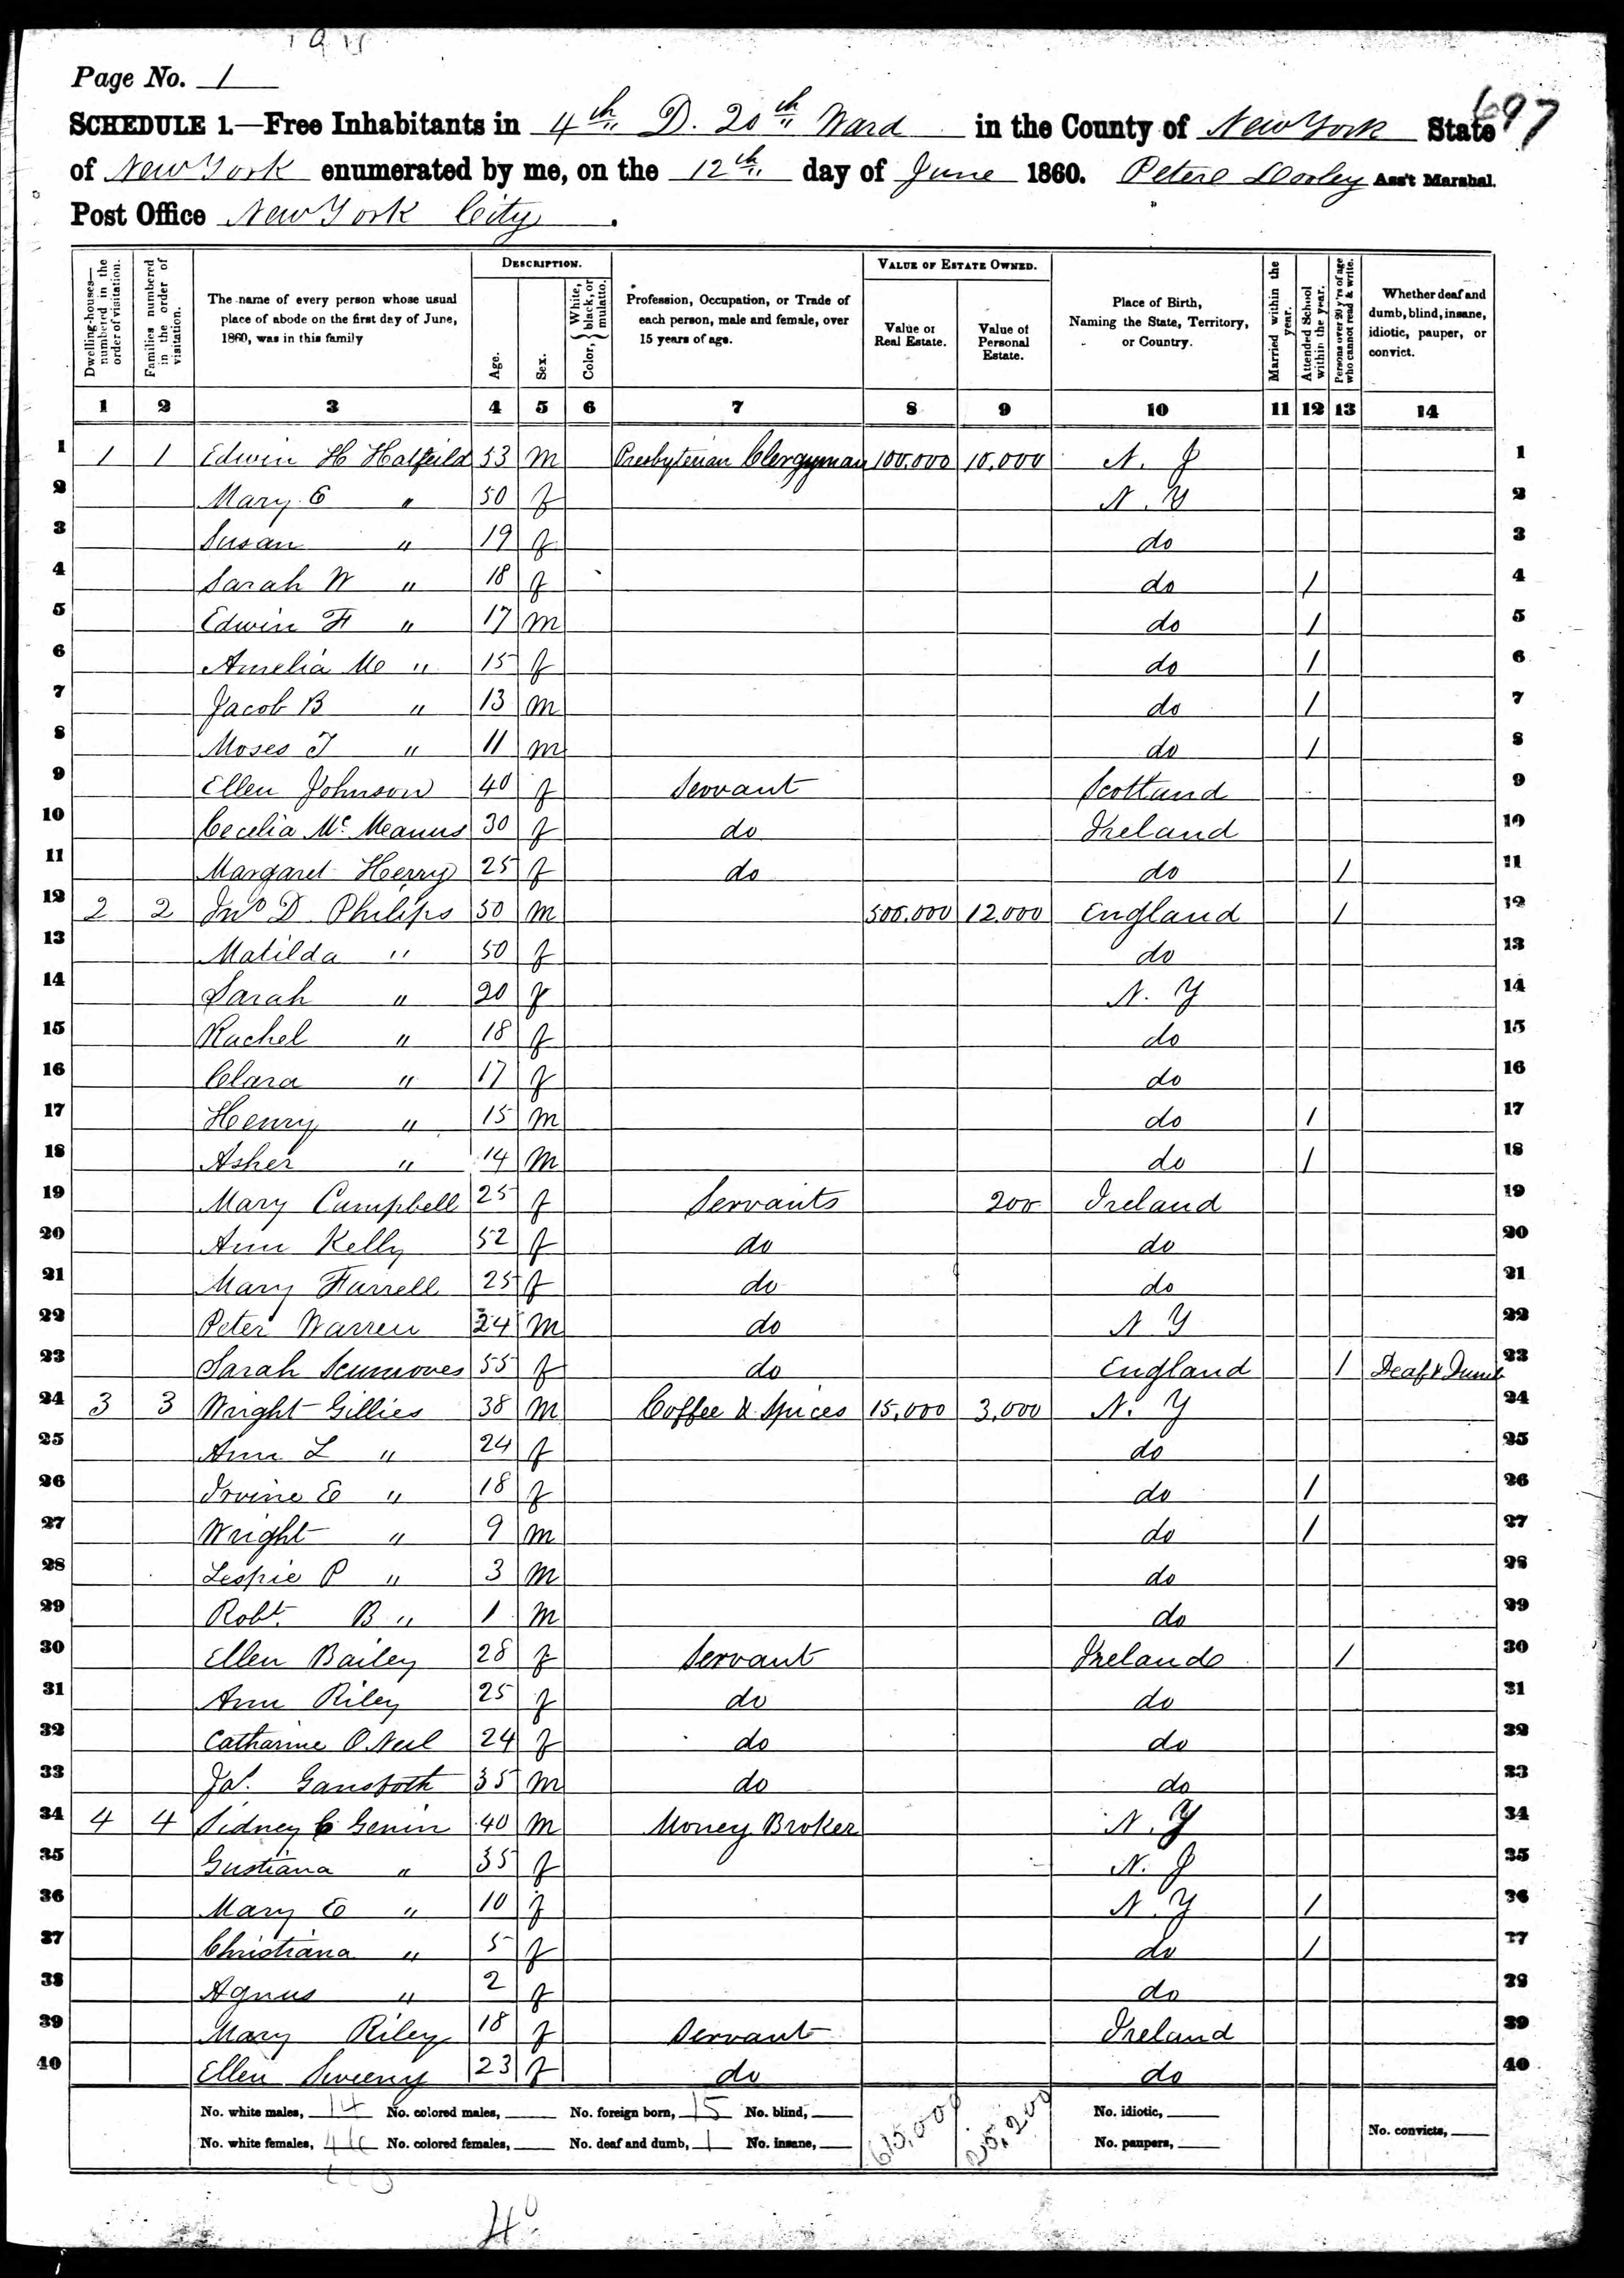 Page No. 1
697
SCHEDULE 1.—Free Inhabitants in 4th D. 20th Ward in the County of New York State
of New York enumerated by me, on the 12th day of June 1860. Peter Dooley Ass't Marshal.
Post Office New York City.
Dwelling-houses—numbered in the order of visitation.
Families numbered in the order of visitation.
The name of every person whose usual place of abode on the first day of June, 1860, was in this family
DESCRIPTION.
Age.
Sex.
Color, { White, black, or mulatto.
Profession, Occupation, or Trade of each person, male and female, over 15 years of age.
VALUE OF ESTATE OWNED.
Value of Real Estate.
Value of Personal Estate.
Place of Birth, Naming the State, Territory, or Country.
Married within the year.
Attended School within the year.
Persons over 20 y'rs of age who cannot read & write.
Whether deaf and dumb, blind, insane, idiotic, pauper, or convict.
1 2 3 4 5 6 7 8 9 10 11 12 13 14
1 1 1 Edwin H Hatfeild 53 m Presbyterian Clergyman 100,000 10,000 N. J 1
2 Mary E " 50 f N. Y 2
3 Susan " 19 f do 3
4 Sarah W " 18 f do / 4
5 Edwin F " 17 m do / 5
6 Amelia M " 15 f do / 6
7 Jacob B " 13 m do / 7
8 Moses T " 11 m do / 8
9 Ellen Johnson 40 f Servant Scotland 9
10 Cecelia Mc Meanus 30 f do Ireland 10
11 Margaret Henry 25 f do do / 11
12 2 2 Jno D Philips 50 m 500,000 12,000 England / 12
13 Matilda " 50 f do 13
14 Sarah " 20 f N. Y 14
15 Rachel " 18 f do 15
16 Clara " 17 f do 16
17 Henry " 15 m do / 17
18 Asher " 14 m do / 18
19 Mary Campbell 25 f Servants 200 Ireland 19
20 Ann Kelly 52 f do do 20
21 Mary Farrell 25 f do do 21
22 Peter Warren 24 m do N Y 22
23 Sarah 55 f do England / Deaf & Dumb 23
24 3 3 Wright Gillies 38 m Coffee & Spices 15,000 3,000 N. Y 24
25 Ann L " 24 f do 25
26 Irvine E " 18 f do / 26
27 Wright " 9 m do / 27
28 Lespie P " 3 m do 28
29 Robt. B " 1 m do 29
30 Ellen Bailey 28 f Servant Ireland / 30
31 Ann Riley 25 f do do 31
32 Catharine O Neil 24 f do do 32
33 Jas. 35 m do do 33
34 4 4 Sidney C Genin 40 m Money Broker N. Y 34
35 Gustiana " 35 f N. J 35
36 Mary E " 10 f N. Y / 36
37 Christiana " 5 f do / 37
38 Agnus " 2 f do 38
39 Mary Riley 18 f Servant Ireland 39
40 Ellen Sweeny 23 f do do 40
No. white males, 14 No. colored males, No. foreign born, 15 No. blind, 615,000 25,200 No. idiotic,
No. white females, No. colored females, No. deaf and dumb, 1 No. insane, No. paupers, No. convicts,
40